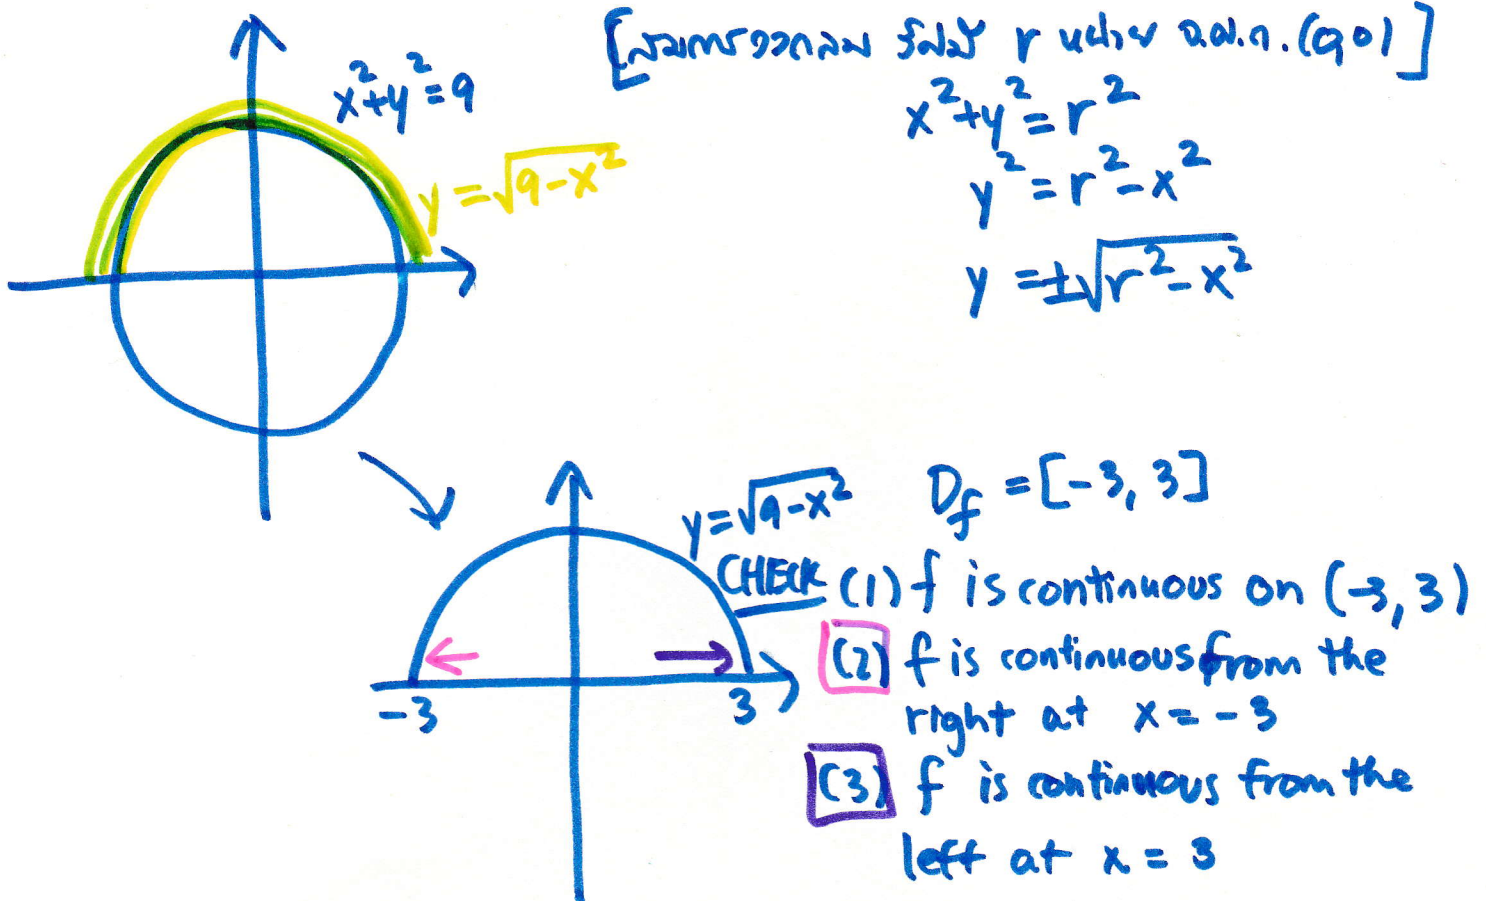 [สมการวงกลม รัศมี r หน่วย จ.ศ.ก. (0,0)]
x²+y²=9
x²+y²=r²
y=√(9-x²)
y²=r²-x²
y=±√(r²-x²)
y=√(9-x²)
D_f=[-3, 3]
CHECK (1) f is continuous on (-3, 3)
(2) f is continuous from the
right at x=-3
-3
3
(3) f is continuous from the
left at x=3